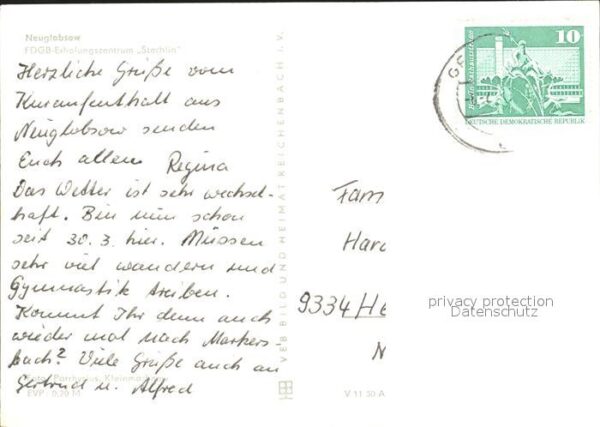 Neuglobsow
FDGB-Erholungszentrum „Stechlin"
Herzliche Grüße vom
Kuraufenthalt aus
Neuglobsow senden
Euch allen Regina
Das Wetter ist sehr wechsel-
haft. Bin nun schon
seit 30.3. hier. Müssen
sehr viel wandern und
Gymnastik treiben.
Kommt Ihr denn auch
wieder mal nach Markers
bach? Viele Grüße auch an
Gertrud u. Alfred
Kleinmachnow
EVP 0,20 M
VEB BILD UND HEIMAT REICHENBACH i. V.
V 11 50 A
10
DEUTSCHE DEMOKRATISCHE REPUBLIK
Fam
Hard
9334 He
N
privacy protection
Datenschutz